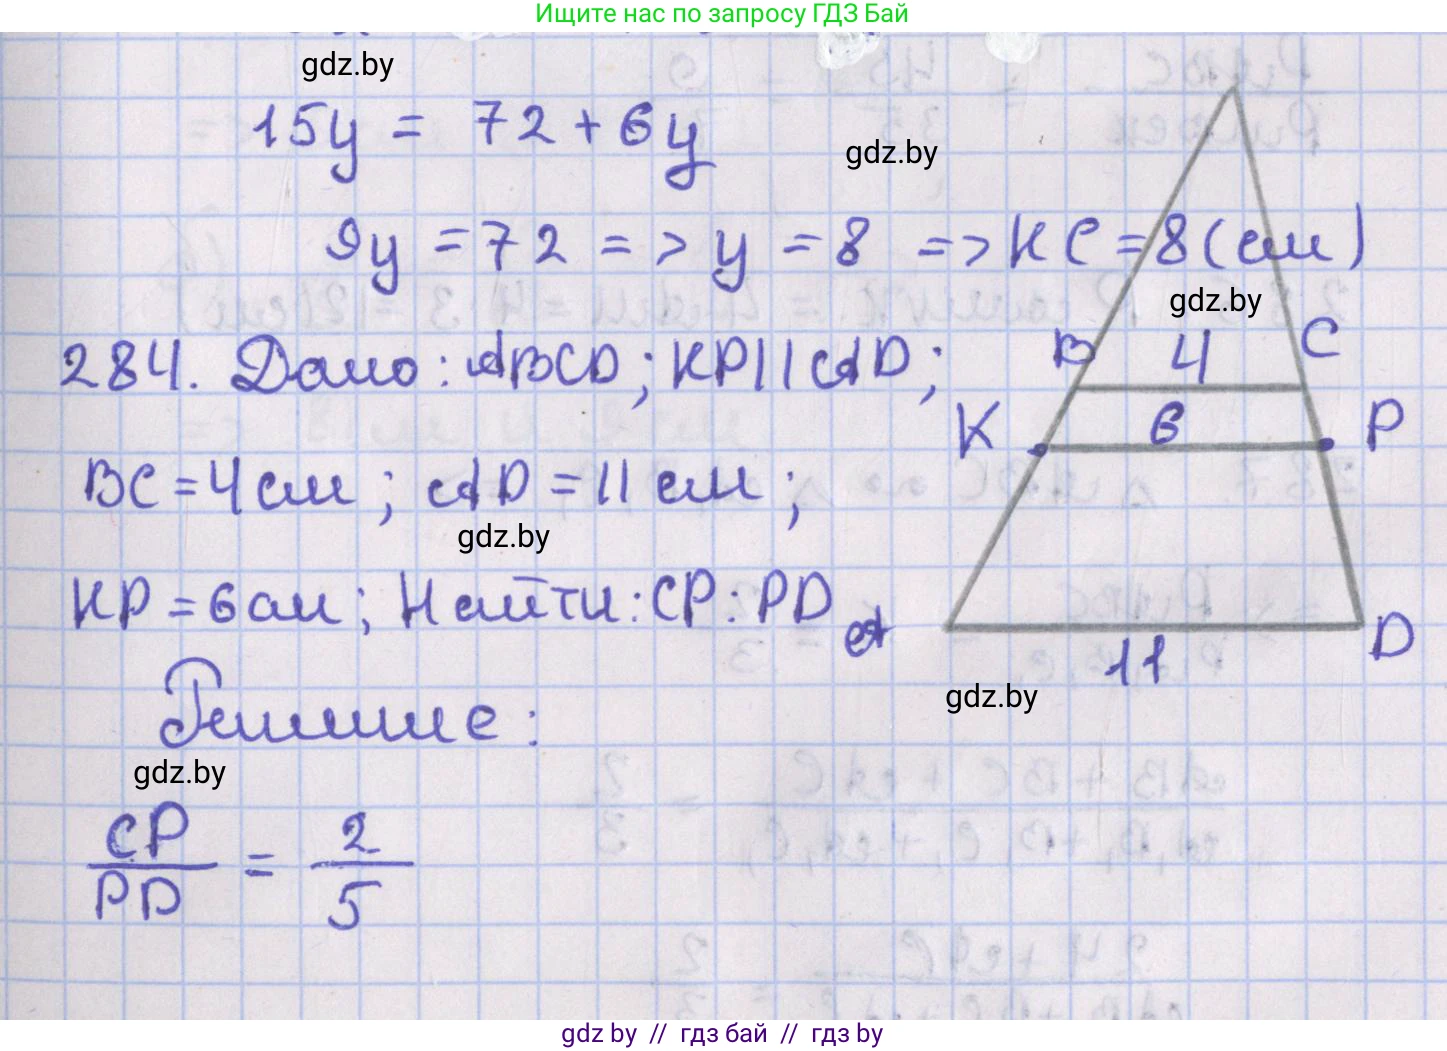 Ищите нас по запросу ГДЗ Бай
gdz.by
15y = 72 + 6y
gdz.by
9y = 72 => y = 8 => KC = 8 (см)
gdz.by
284. Дано: ABCD; KP || AD;
B 4 C
K 6 P
BC = 4 см; AD = 11 см;
gdz.by
KP = 6 см; Найти: CP : PD
A 11 D
gdz.by
Решение:
gdz.by
CP/PD = 2/5
gdz by // гдз бай // гдз by